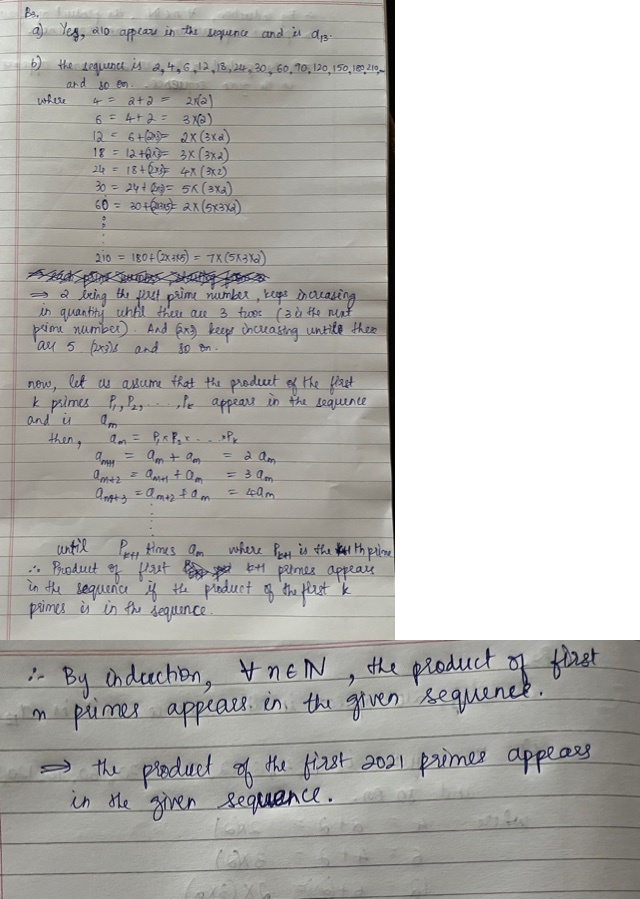 B3.
a) Yes, 210 appears in the sequence and is a13.
b) the sequence is 2,4,6,12,18,24,30,60,90,120,150,180,210,...
and so on.
where 4 = 2+2 = 2x(2)
6 = 4+2 = 3x(2)
12 = 6+(2x3)= 2x(3x2)
18 = 12+(2x3)= 3x(3x2)
24 = 18+(2x3)= 4x(3x2)
30 = 24+(2x3)= 5x(3x2)
60 = 30+(2x3x5)= 2x(5x3x2)
210 = 180+(2x3x5) = 7x(5x3x2)
⇒ 2 being the first prime number, keeps increasing
in quantity until there are 3 twos (3 is the next
prime number). And (2x3) keeps increasing until there
are 5 (2x3)s and so on.
now, let us assume that the product of the first
k primes P1, P2, ..., Pk appears in the sequence
and is am
then, am = P1 x P2 x ... x Pk
am+1 = am + am = 2 am
am+2 = am+1 + am = 3 am
am+3 = am+2 + am = 4am
until Pk+1 times am where Pk+1 is the k+1 th prime
∴ Product of first k+1 primes appears
in the sequence if the product of the first k
primes is in the sequence.
∴ By induction, ∀ n∈ℕ, the product of first
n primes appears in the given sequence.
⇒ the product of the first 2021 primes appears
in the given sequence.